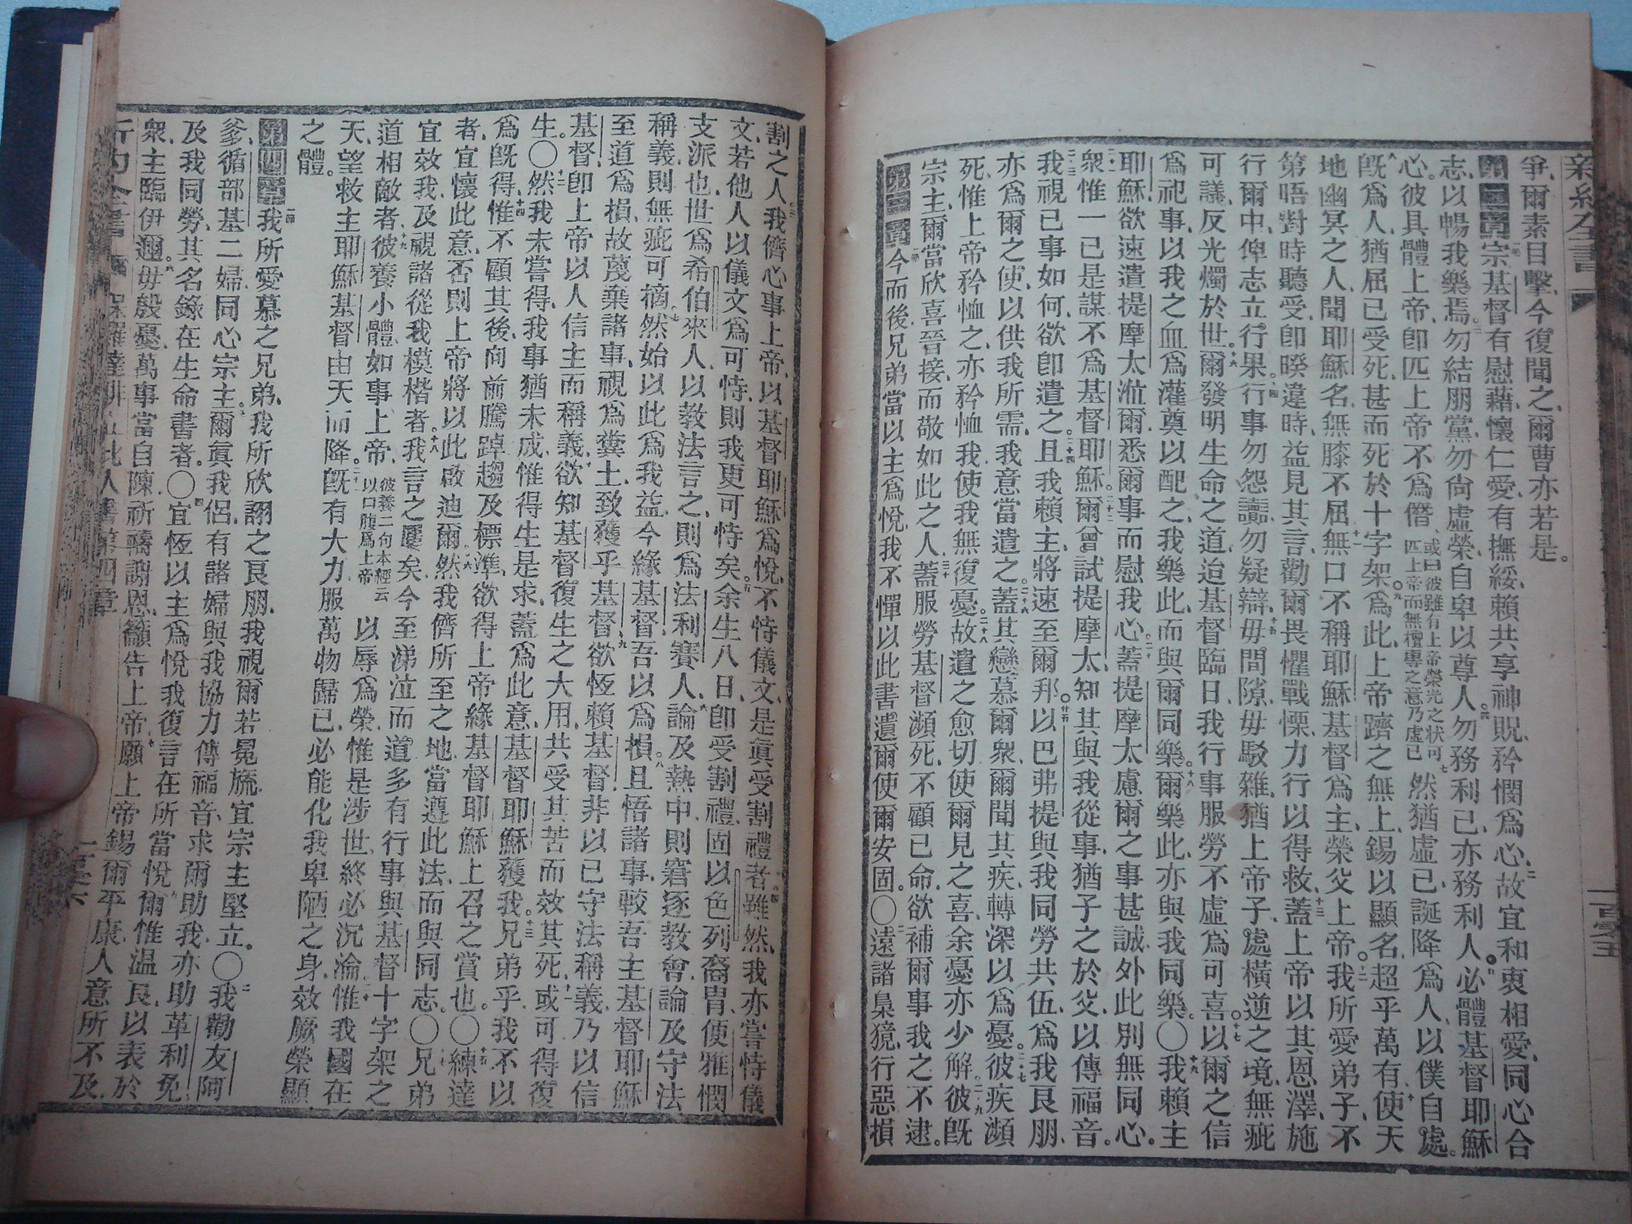 新約全書
爭、爾素目擊、今復聞之、爾曹亦若是。
第二章 宗基督有慰藉、懷仁愛、有撫綏、賴共享神貺、矜憫爲心、故宜和衷相愛、同心合
志、以暢我樂焉、勿結朋黨、勿尙虛榮、自卑以尊人、勿務利己、亦務利人、必體基督耶穌
心。彼具體上帝、卽匹上帝不爲僭、或曰彼雖有上帝榮光之狀可匹上帝而無擅專之意乃虛已 然猶虛己、誕降爲人、以僕自處。
旣爲人、猶屈己受死、甚而死於十字架。爲此、上帝躋之無上、錫以顯名、超乎萬有、使天
地幽冥之人、聞耶穌名、無膝不屈、無口不稱耶穌基督爲主、榮父上帝。我所愛弟子、不
第晤對時聽受、卽暌違時、益見其言、勸爾畏懼戰慄、力行以得救、蓋上帝以其恩澤、施
行爾中、俾志立行果。行事勿怨讟、勿疑辯、毋間隙、毋駁雜、猶上帝子、處橫逆之境、無疵
可議、反光燭於世、爾發明生命之道、迨基督臨日、我行事服勞不虛、爲可喜。以爾之信
爲祀事、以我之血爲灌奠以配之、我樂此、而與爾同樂、爾樂此、亦與我同樂。〇我賴主
耶穌、欲速遣提摩太涖爾、悉爾事而慰我心、蓋提摩太慮爾之事甚誠、外此別無同心。
衆惟一己是謀、不爲基督耶穌。爾曾試提摩太、知其與我從事、猶子之於父、以傳福音。
我視己事如何、欲卽遣之、且我賴主、將速至爾邦。以巴弗提與我同勞共伍、爲我良朋、
亦爲爾之使、以供我所需、我意當遣之、蓋其戀慕爾衆、爾聞其疾、轉深以爲憂。彼疾瀕
死、惟上帝矜恤之、亦矜恤我、使我無復憂、故遣之愈切、使爾見之喜、余憂亦少解、彼旣
宗主、爾當欣喜晉接、而敬如此之人、蓋服勞基督、瀕死、不顧己命、欲補爾事我之不逮。
第三章 今而後、兄弟當以主爲悅、我不憚以此書遺爾、使爾安固。〇遠諸梟獍、行惡損
割之人、我儕心事上帝、以基督耶穌爲悅、不恃儀文、是眞受割禮者、雖然、我亦嘗恃儀
文、若他人以儀文爲可恃、則我更可恃矣、余生八日、卽受割禮、固以色列裔胄、便雅憫
支派也、世爲希伯來人、以敎法言之、則爲法利賽人、論及熱中、則窘逐敎會、論及守法
稱義、則無疵可摘、然始以此爲我益、今緣基督、吾以爲損、且悟諸事、較吾主基督耶穌
至道爲損、故蔑棄諸事、視爲糞土、致獲乎基督、欲恆賴基督、非以己守法稱義、乃以信
基督、卽上帝以人信主而稱義、欲知基督復生之大用、共受其苦、而效其死、或可得復
生。〇然我未嘗得、我事猶未成、惟得生是求、蓋爲此意、基督耶穌獲我、兄弟乎、我不以
爲旣得、惟不顧其後、向前騰踔、趨及標準、欲得上帝緣基督耶穌上召之賞也。〇練達
者、宜懷此意、否則上帝將以此啟迪爾、然我儕所至之地、當遵此法、而與同志。〇兄弟
宜效我、及視諸從我模楷者、我言之屢矣、今至涕泣而道、多有行事、與基督十字架之
道相敵者、彼養小體如事上帝、彼養二句本經云以口腹爲上帝 以辱爲榮、惟是涉世、終必沉淪、惟我國在
天、望救主耶穌基督由天而降、旣有大力服萬物歸己、必能化我卑陋之身、效厥榮顯
之體。
第四章 我所愛慕之兄弟、我所欣詡之良朋、我視爾若冕旒、宜宗主堅立。〇我勸友阿
爹、循都基二婦、同心宗主。爾眞我侶、有諸婦與我協力傳福音、求爾助我、亦助革利免、
及我同勞、其名錄在生命書者。〇宜恆以主爲悅、我復言在所當悅、爾惟温良、以表於
衆、主臨伊邇、毋殷憂、萬事當自陳、祈禱謝恩、籲告上帝、願上帝錫爾平康、人意所不及、
新約全書 保羅達腓立比人書第四章